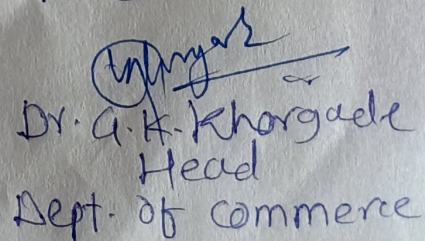 Dr. A. K. Khorgade
Head
Dept. of commerce